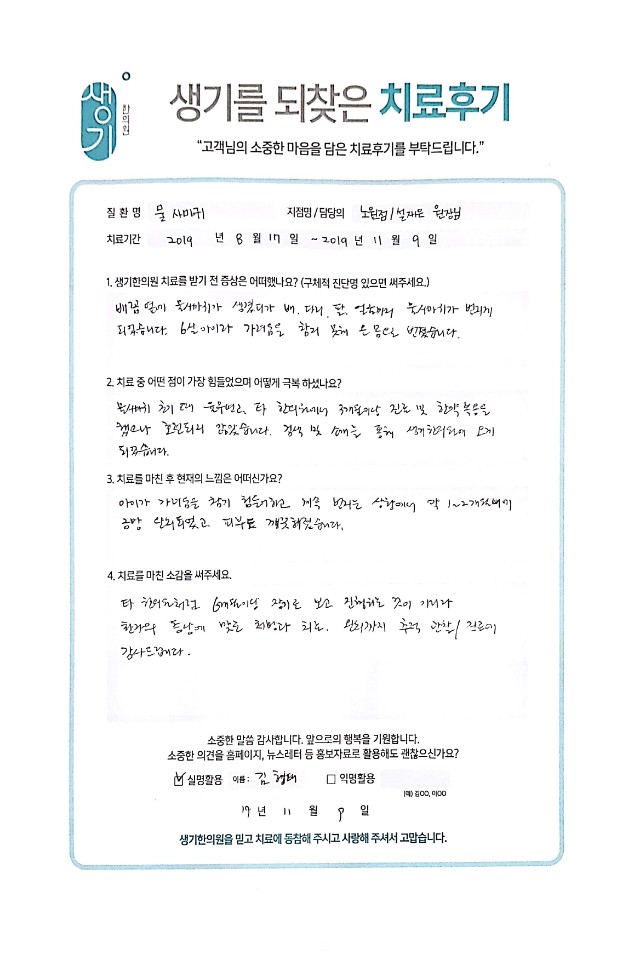 생기 한의원
생기를 되찾은 치료후기
“고객님의 소중한 마음을 담은 치료후기를 부탁드립니다.”
질 환 명 물 사마귀 지점명 / 담당의 노원점 / 원장님
치료기간 2019 년 8 월 17 일 ~ 2019 년 11 월 9 일
1. 생기한의원 치료를 받기 전 증상은 어떠했나요? (구체적 진단명 있으면 써주세요.)
배꼽 옆에 물사마귀가 생겼다가 배, 다리, 팔, 물사마귀가 번지게
되었습니다. 6살 아이라 가려움을 참지 못해 온 몸으로 번졌습니다.
2. 치료 중 어떤 점이 가장 힘들었으며 어떻게 극복 하셨나요?
물사마귀 초기 때 타 한의원에서 3개월이상 진료 및 한약 복용을
했으나 호전되지 않았습니다. 검색 및 소개를 통해 생기한의원에 오게
되었습니다.
3. 치료를 마친 후 현재의 느낌은 어떠신가요?
아이가 가려움을 참기 힘들어하고 계속 번지는 상황에서 약 1~2개월만에
금방 완치되었고, 피부도 깨끗해졌습니다.
4. 치료를 마친 소감을 써주세요.
타 한의원처럼 6개월이상 장기로 보고 진행하는 것이 아니라
환자의 증상에 맞는 처방과 치료. 완치까지 추적 관찰/진료에
감사드립니다.
소중한 말씀 감사합니다. 앞으로의 행복을 기원합니다.
소중한 의견을 홈페이지, 뉴스레터 등 홍보자료로 활용해도 괜찮으신가요?
실명활용 이름 : 김형태 익명활용
(예) 김OO, 이OO
19 년 11 월 9 일
생기한의원을 믿고 치료에 동참해 주시고 사랑해 주셔서 고맙습니다.